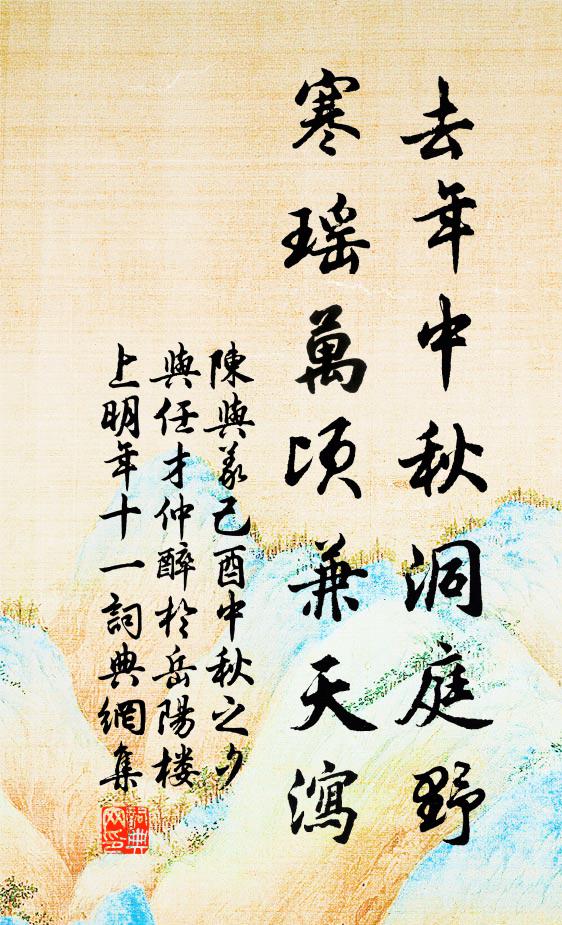 去年中秋洞庭野
寒瑶萬頃兼天瀉
陳與義己酉中秋之夕
與任才仲醉於岳陽楼
上明年十一詞典網集
詞典
网印